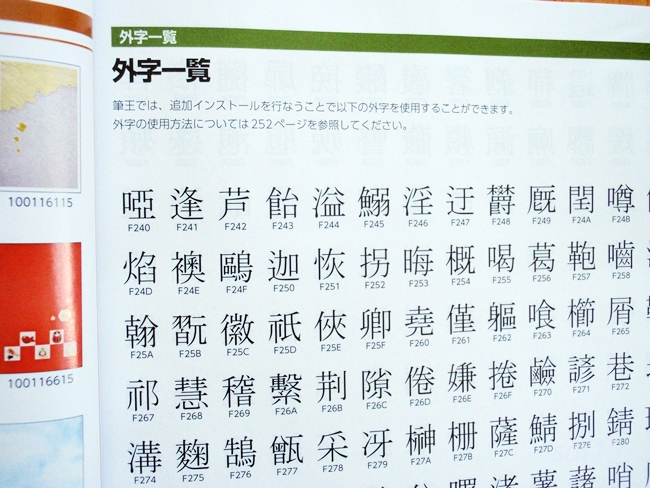 外字一覧
外字一覧
筆王では、追加インストールを行なうことで以下の外字を使用することができます。
外字の使用方法については252ページを参照してください。
啞 逢 芦 飴 溢 鰯 淫 迂 欝 厩 閏 噂
F240 F241 F242 F243 F244 F245 F246 F247 F248 F249 F24A F24B
焰 襖 鷗 迦 恢 拐 晦 概 喝 葛 鞄 嚙
F24D F24E F24F F250 F251 F252 F253 F254 F255 F256 F257 F258
翰 翫 徽 祇 俠 卿 堯 僅 軀 喰 櫛 屑
F25A F25B F25C F25D F25E F25F F260 F261 F262 F263 F264 F265
祁 慧 稽 繫 荆 隙 倦 嫌 捲 鹼 諺 巷
F267 F268 F269 F26A F26B F26C F26D F26E F26F F270 F271 F272
溝 麴 鵠 甑 采 冴 榊 柵 薩 鯖 捌 錆
F274 F275 F276 F277 F278 F279 F27A F27B F27C F27D F27E F280
渚 薯 藷 哨
100116115
100116615